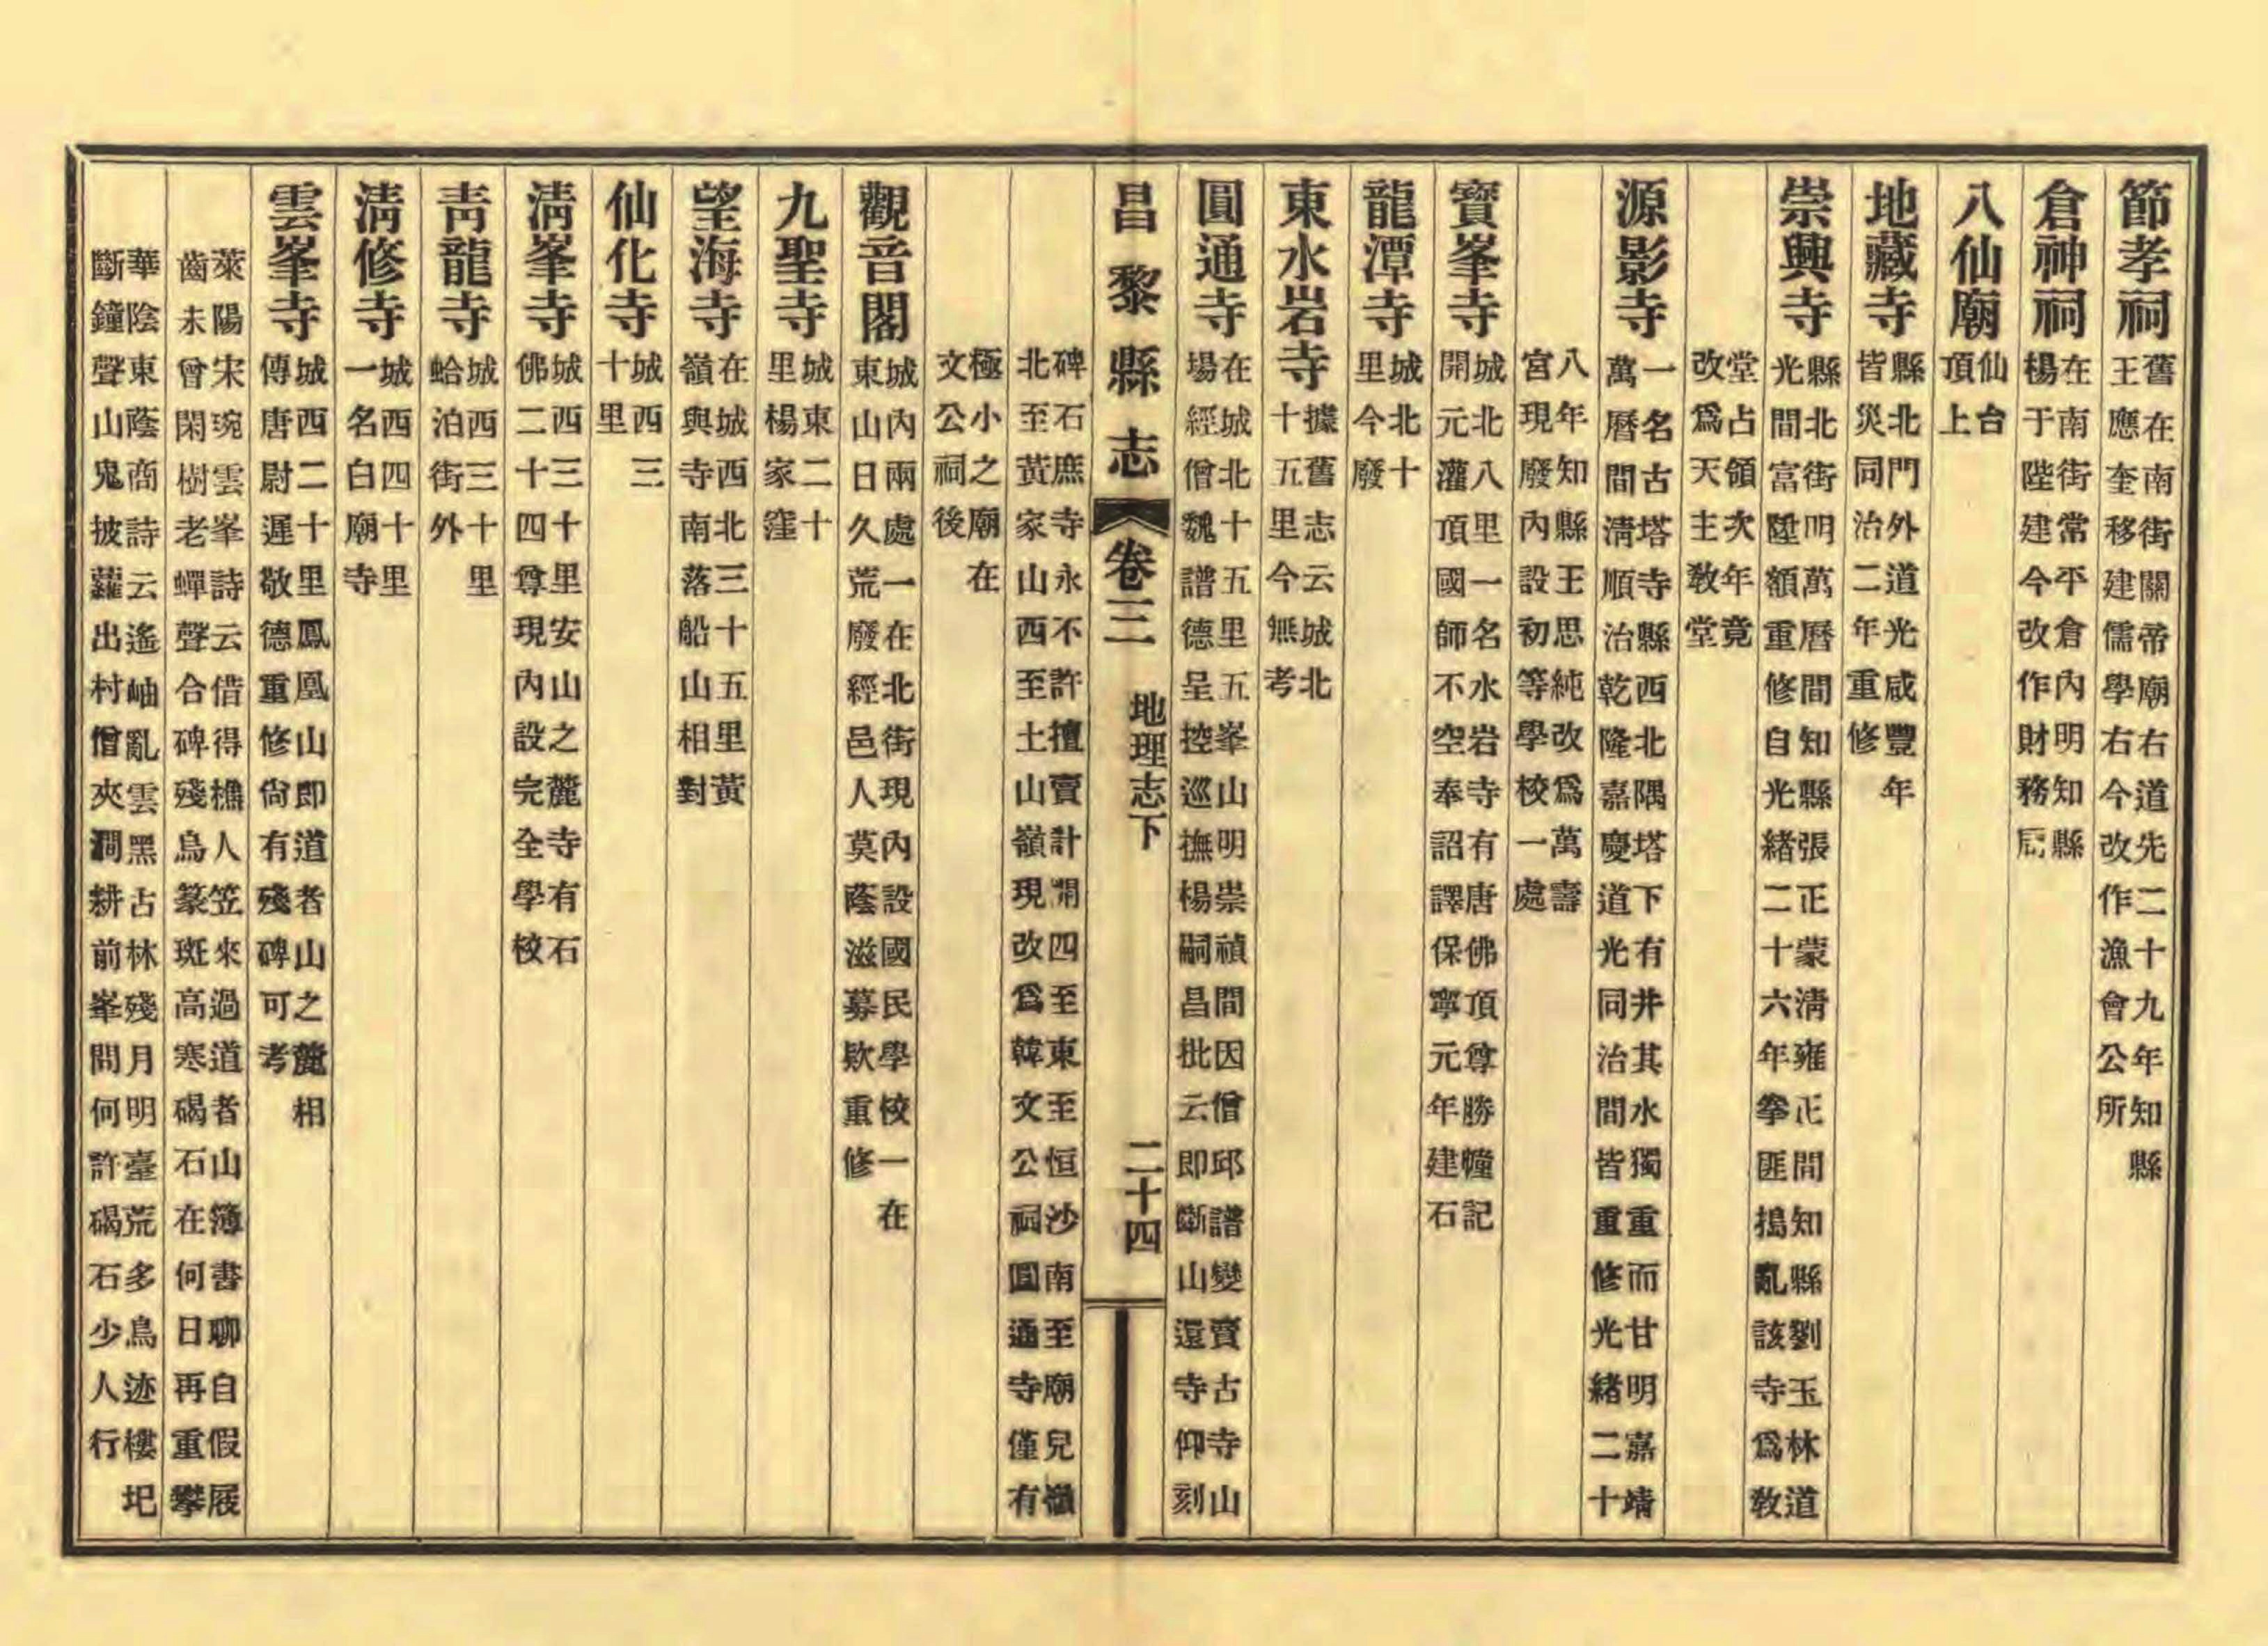 節孝祠舊在南街關帝廟右道光二十九年知縣
王應奎移建儒學右今改作漁會公所
倉神祠在南街常平倉內明知縣
楊于陛建今改作財務局
八仙廟仙台
頂上
地藏寺縣北門外道光咸豐年
皆災同治二年重修
崇興寺縣北街明萬曆間知縣張正蒙淸雍正間知縣劉玉林道
光間富陞額重修自光緒二十六年拳匪搗亂該寺爲敎
堂占領次年竟
改爲天主敎堂
源影寺一名古塔寺縣西北隅塔下有井其水獨重而甘明嘉靖
萬曆間淸順治乾隆嘉慶道光同治間皆重修光緒二十
八年知縣王思純改爲萬壽
宮現廢內設初等學校一處
寶峯寺城北八里一名水岩寺有唐佛頂尊勝幢記
開元灌頂國師不空奉詔譯保寧元年建石
龍潭寺城北十
里今廢
東水岩寺據舊志云城北
十五里今無考
圓通寺在城北十五里五峯山明崇禎間因僧邱譜變賣古寺山
場經僧魏譜德呈控巡撫楊嗣昌批云卽斷山還寺仰刻
昌黎縣志 卷三 地理志下 二十四
碑石庶寺永不許擅賣計開四至東至恒沙南至廟兒嶺
北至黃家山西至土山嶺現改爲韓文公祠圓通寺僅有
極小之廟在
文公祠後
觀音閣城內兩處一在北街現內設國民學校一在
東山日久荒廢經邑人莫蔭滋募欵重修
九聖寺城東二十
里楊家窪
望海寺在城西北三十五里黃
嶺與寺南落船山相對
仙化寺城西三
十里
淸峯寺城西三十里安山之麓寺有石
佛二十四尊現內設完全學校
靑龍寺城西三十里
蛤泊街外
淸修寺城西四十里
一名白廟寺
雲峯寺城西二十里鳳凰山卽道者山之麓相
傳唐尉遲敬德重修尙有殘碑可考
萊陽宋琬雲峯詩云借得樵人笠來過道者山簿書聊自假屐
齒未曾閑樹老蟬聲合碑殘鳥篆斑高寒碣石在何日再重攀
華陰東蔭商詩云遙岫亂雲黑古林殘月明臺荒多鳥迹樓圯
斷鐘聲山鬼披蘿出村僧夾澗耕前峯問何許碣石少人行